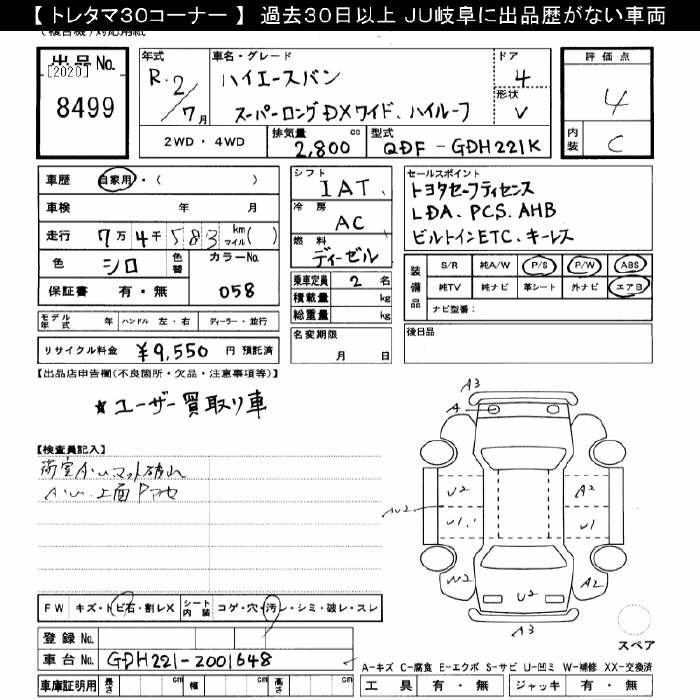 【 トレタマ30コーナー 】 過去30日以上 JU岐阜に出品歴がない車両
出品No.
[2020]
8499
年式
R. 2/7月
車名・グレード
ハイエースバン
スーパーロングDXワイド、ハイルーフ
ドア
4
形状
V
評価点
4
内装
C
2WD・4WD
排気量
2,800 cc
型式
QDF-GDH221K
車歴 自家用・( )
車検 年 月
走行 7万4千583 km マイル( )
色 シロ 色替
カラーNo. 058
保証書 有・無
シフト
IAT.
冷房
AC
燃料
ディーゼル
乗車定員 2 名
積載量 kg
総重量 kg
セールスポイント
トヨタセーフティセンス
LDA、PCS、AHB
ビルトインETC、キーレス
装備品
S/R 純A/W P/S P/W ABS
純TV 純ナビ 革シート 外ナビ エアB
ナビ型番:
モデル年式 年 ハンドル 左・右 ディーラー・並行
リサイクル料金 ¥9,550 円 預託済
名変期限
月 日
後日品
【出品店申告欄(不良箇所・欠品・注意事項等)】
★ユーザー買取り車
【検査員記入】
荷室A・u マット破れ
A・u.上面
A3
A
U2
A2
AU2
U1
U1
W2
U2
A2
A3
FW キズ・トビ石・割レX
シート内装 コゲ・穴・汚レ・シミ・破レ・スレ
登録No.
車台No. GDH221-2001648
スペア
A-キズ C-腐食 E-エクボ S-サビ U-凹ミ W-補修 XX-交換済
車庫証明用 長さ cm 幅 cm 高さ cm
工具 有・無 ジャッキ 有・無